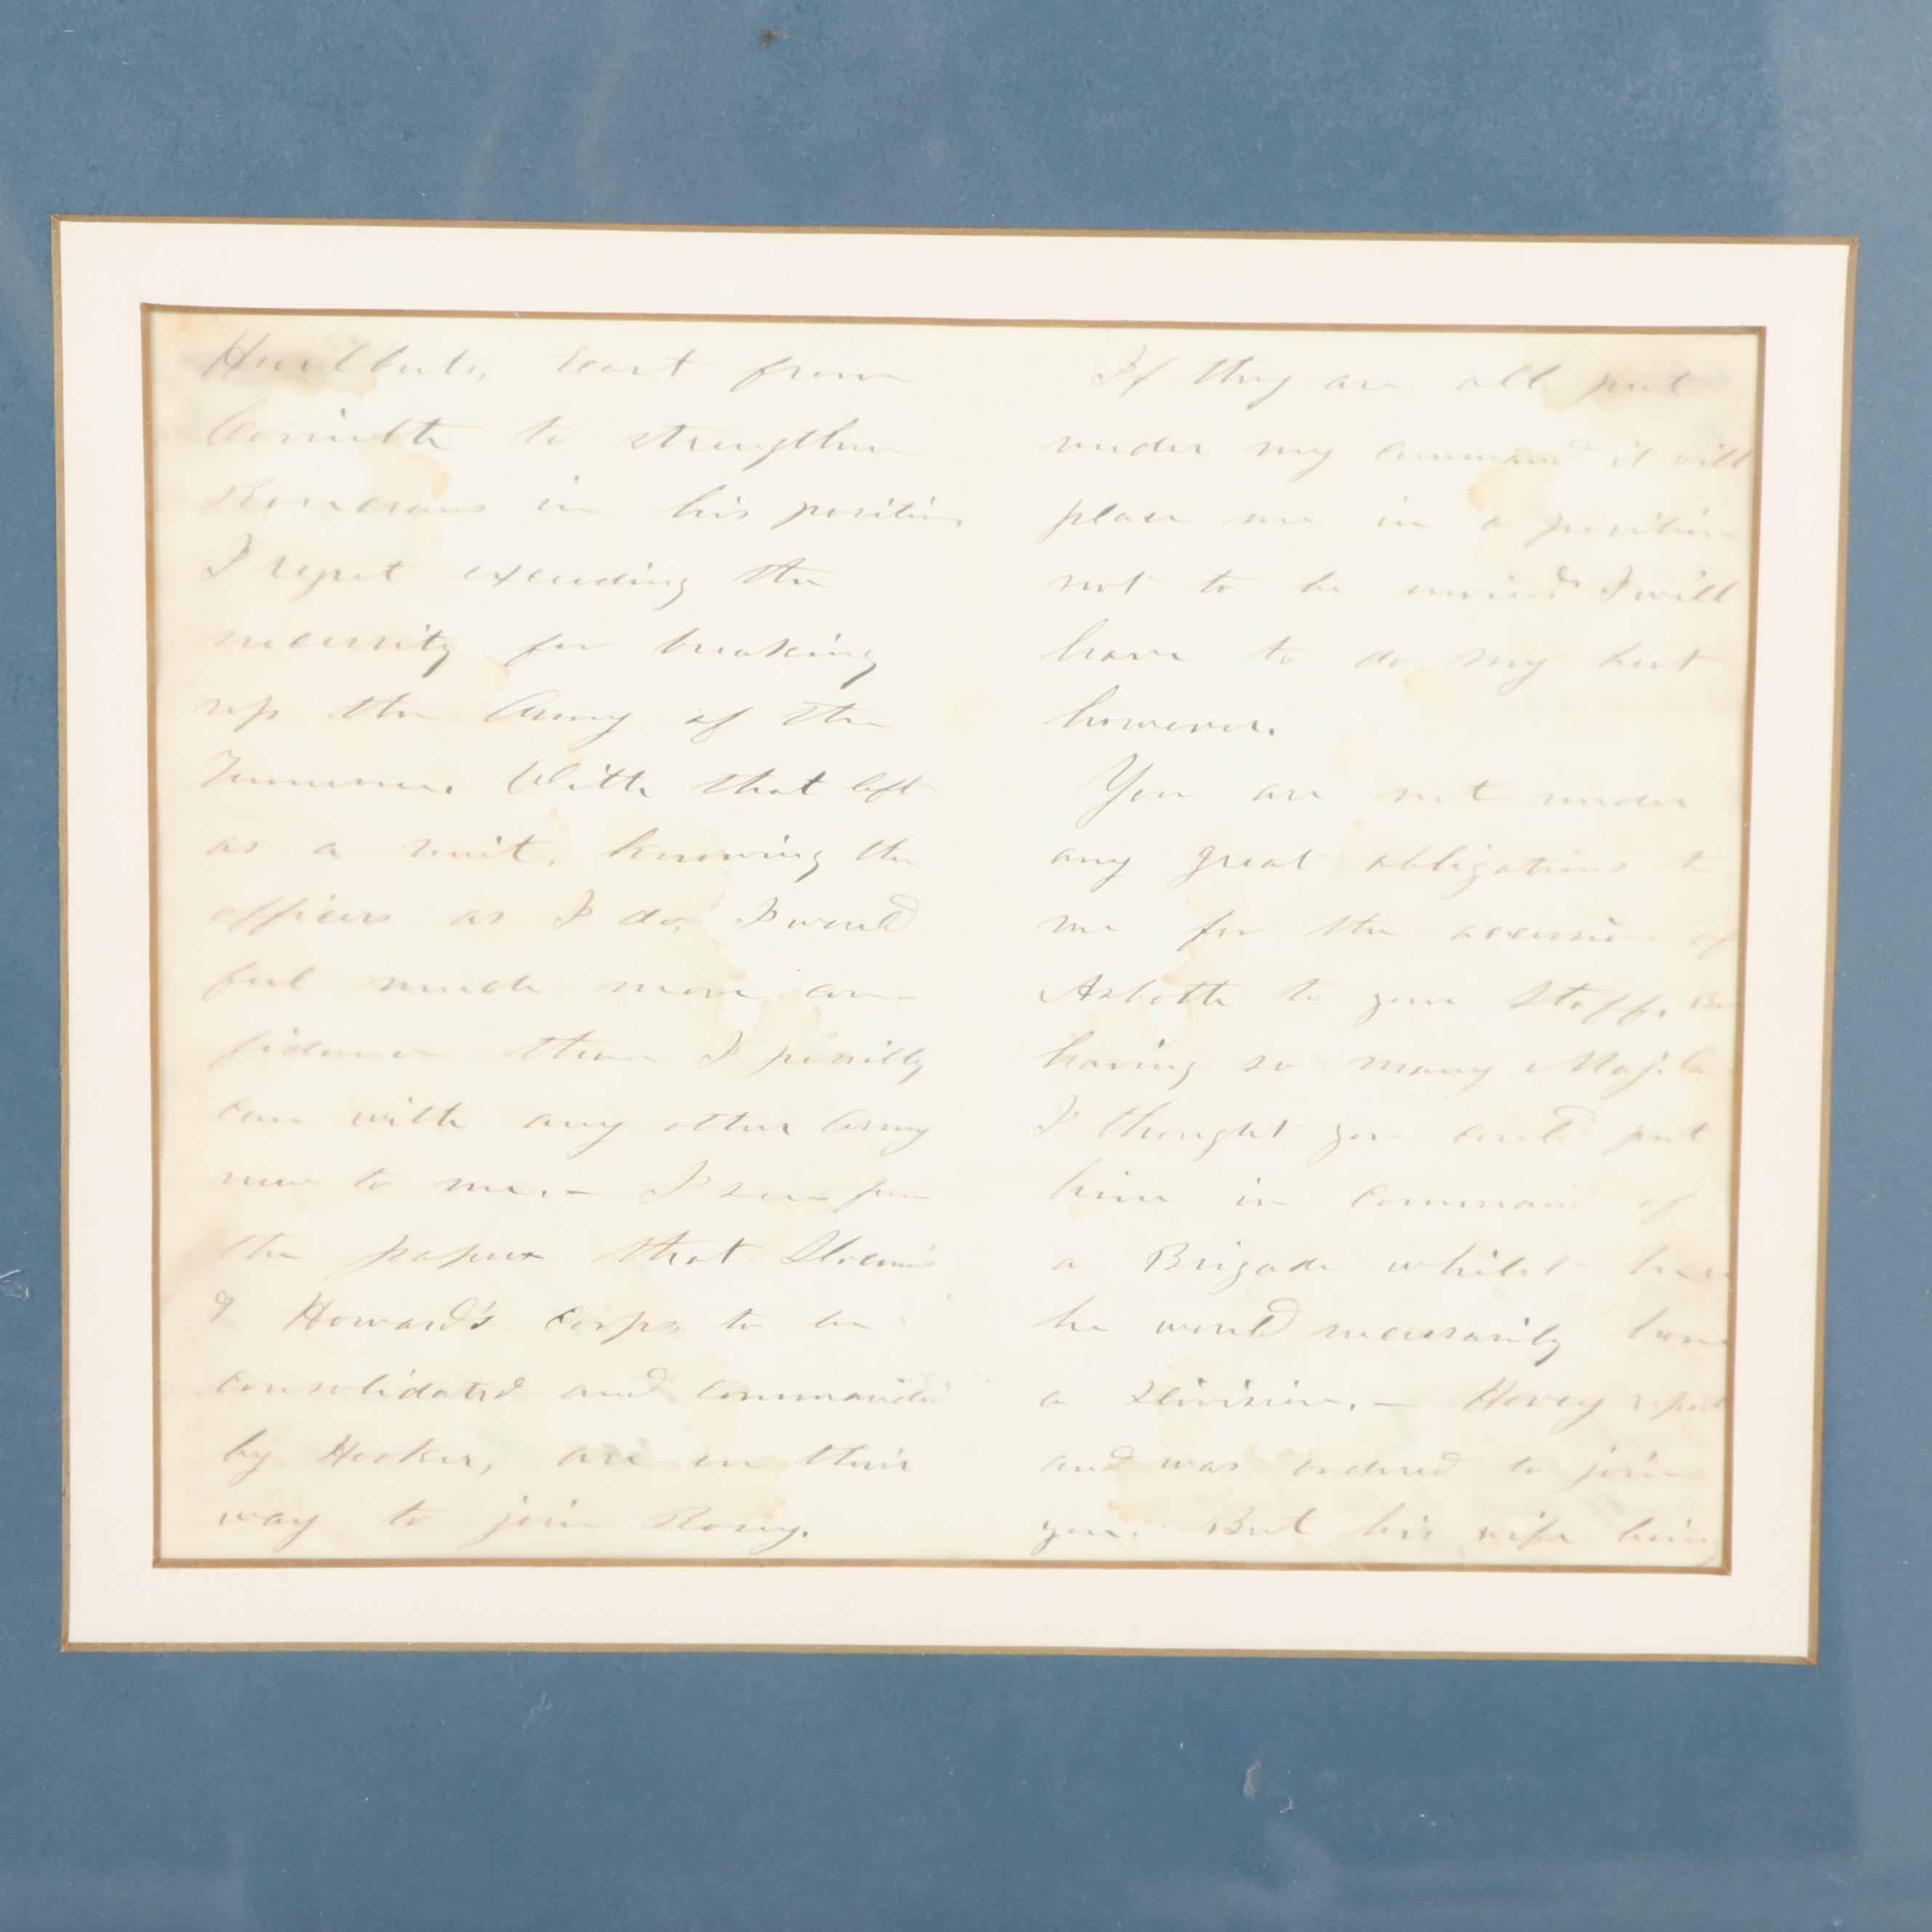 Hurlbuts, East from
Corinth to strengthen
Rosecrans in his position
I regret exceeding the
necessity for breaking
up the Army of the
Tennessee. With that left
as a unit, knowing the
officers as I do, I would
feel much more con-
fidence than I possibly
can with any other Army
new to me. — I see from
the papers that Slocum's
& Howard's corps, to be
consolidated and commanded
by Hooker, are on their
way to join Rosey.
If they are all put
under my command it will
place me in a position
not to be envied. I will
have to do my best
however.
You are not under
any great obligations to
me for the accession of
Asboth to your Staff.
having so many Maj.
I thought you could put
him in command of
a Brigade whilst here
he would necessarily have
a Division. — Hovey
and was ordered to join
you. But his wife being